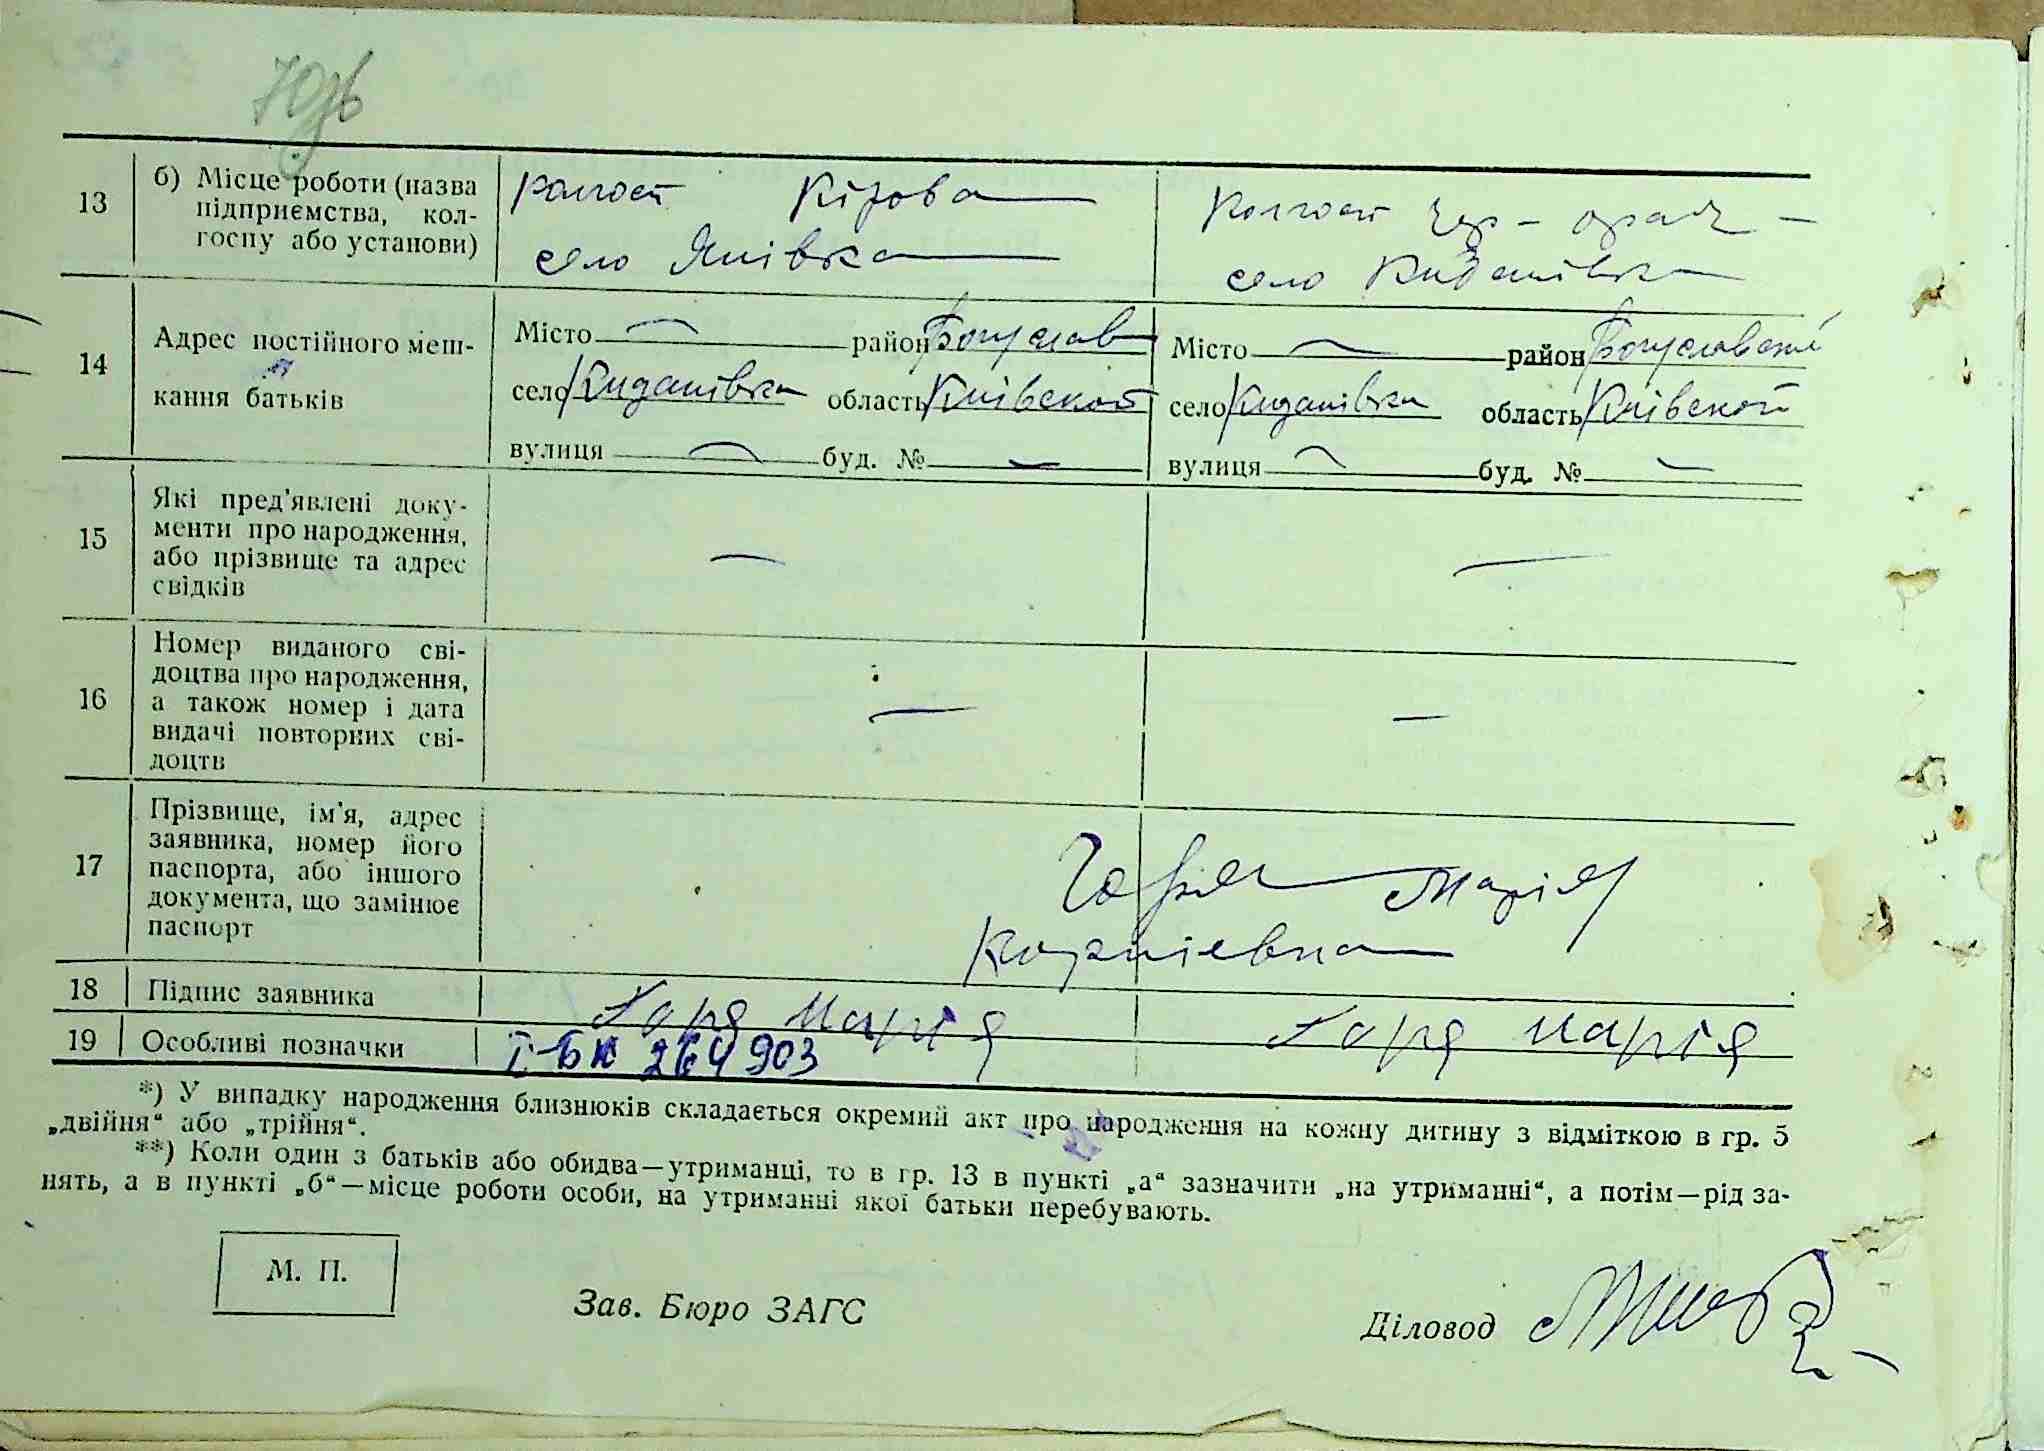 70зв
13
б) Місце роботи (назва
підприємства, кол-
госпу або установи)
колгосп Кірова
село Яцівка
колгосп Чер- орач -
село Киданівка
14
Адрес постійного меш-
кання батьків
Місто район Богуслав
село Киданівка область Київської
вулиця буд. №
Місто район Богуславський
село Киданівка область Київської
вулиця буд. №
15
Які пред'явлені доку-
менти про народження,
або прізвище та адрес
свідків
16
Номер виданого сві-
доцтва про народження,
а також номер і дата
видачі повторних сві-
доцтв
17
Прізвище, ім'я, адрес
заявника, номер його
паспорта, або іншого
документа, що замінює
паспорт
Гаря Марія
18
Підпис заявника
Гаря Марія
Гаря Марія
19
Особливі позначки
І-БК 264903
*) У випадку народження близнюків складається окремий акт про народження на кожну дитину з відміткою в гр. 5
„двійня“ або „трійня“.
**) Коли один з батьків або обидва—утриманці, то в гр. 13 в пункті „а“ зазначити „на утриманні“, а потім—рід за-
нять, а в пункті „б“—місце роботи особи, на утриманні якої батьки перебувають.
М. П.
Зав. Бюро ЗАГС
Діловод